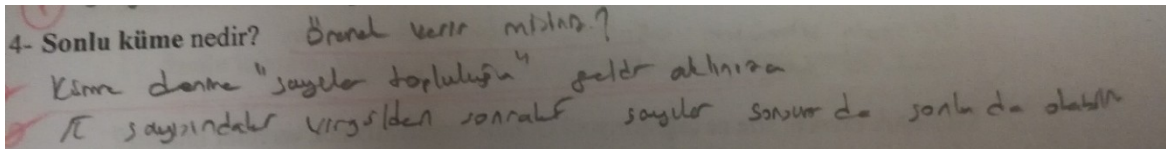 4- Sonlu küme nedir? Örnek verir misiniz?
Küme denince "sayılar topluluğu" gelir aklınıza
π sayısındaki virgülden sonraki sayılar sonsuz da sonlu da olabilir